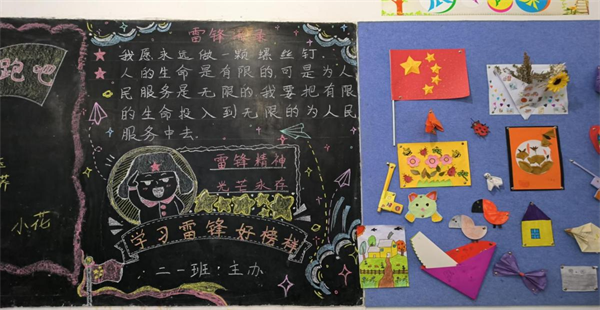 跑吧
小花
我愿永远做一颗螺丝钉.
人的生命是有限的,可是为人
民服务是无限的,我要把有限
的生命投入到无限的为人民
服务中去.
雷锋精神
光芒永存
学习雷锋好榜样
二一班:主办